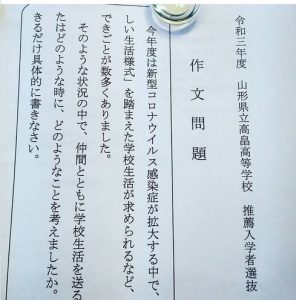 令和三年度　山形県立高畠高等学校　推薦入学者選抜
作文問題
今年度は新型コロナウイルス感染症が拡大する中で、
しい生活様式」を踏まえた学校生活が求められるなど、
できごとが数多くありました。
そのような状況の中で、仲間とともに学校生活を送る
たはどのような時に、どのようなことを考えましたか。
きるだけ具体的に書きなさい。